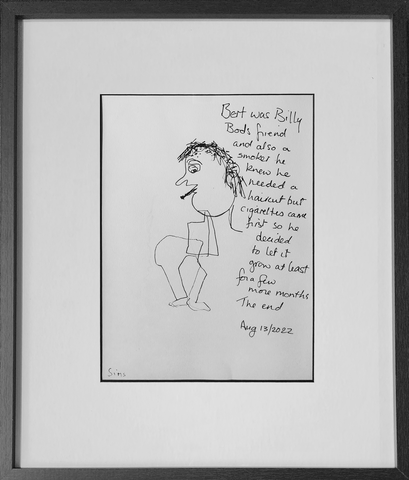 Bert was Billy
Bods friend
and also a
smoker he
knew he
needed a
haircut but
cigarettes came
first so he
decided
to let it
grow at least
for a few
more months
The end
Aug 13/2022
Sims